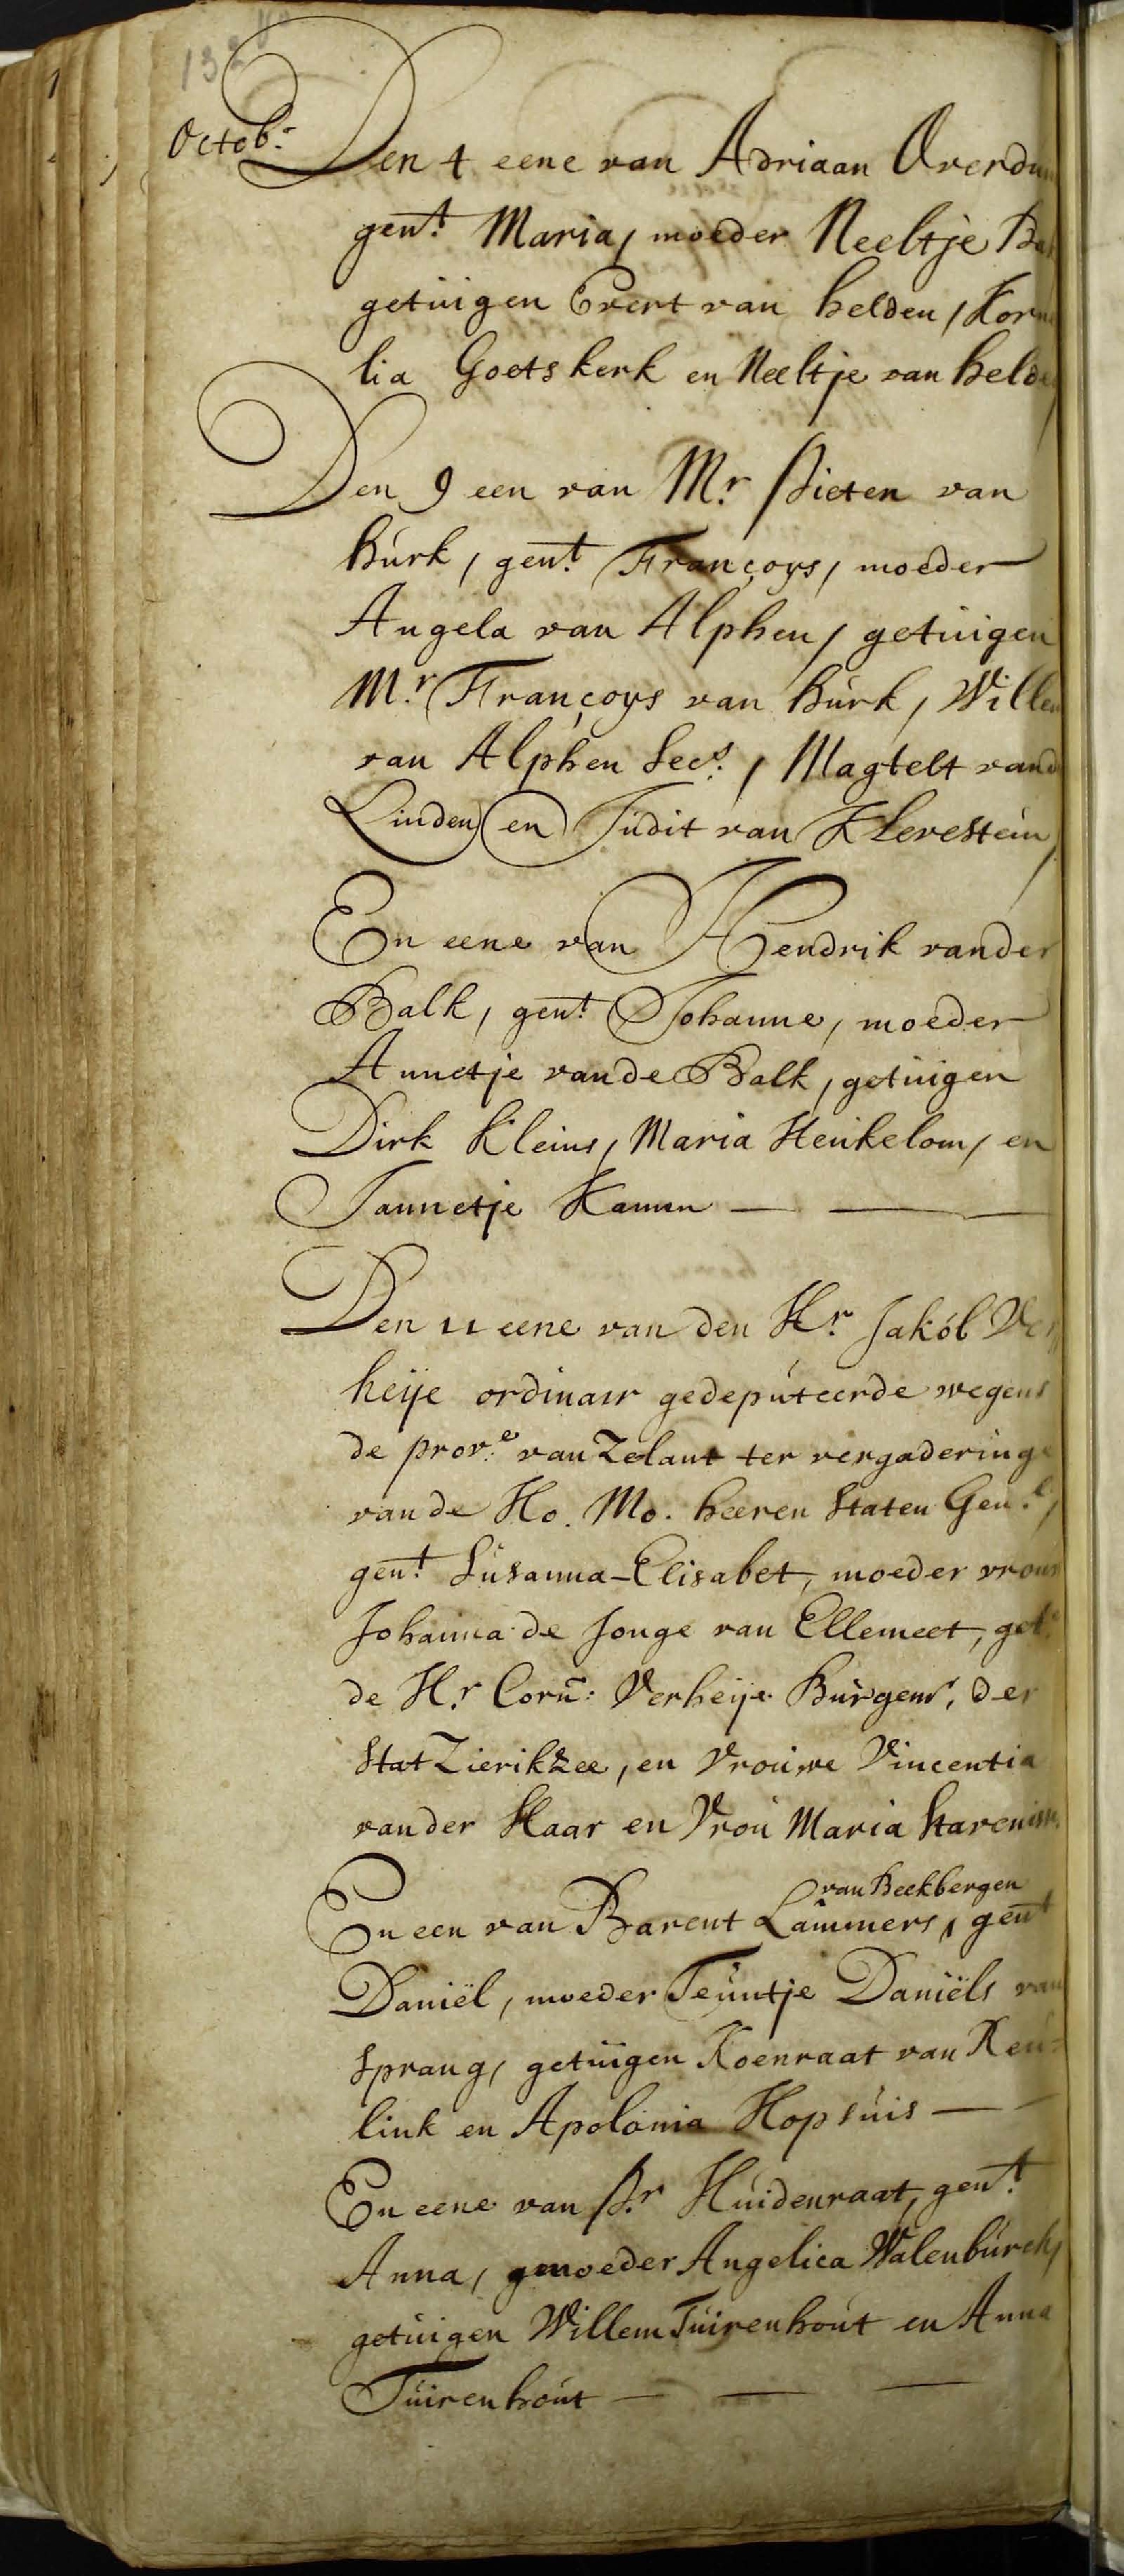 132 v
Octob:
Den 4 eene van Adriaan Overdu
gen.t Maria, moeder Neeltje Ba
getuigen Evert van helden, Korne
lia Goetskerk en Neeltje van helde
Den 9 een van M.r Pieten van
Hurk, gen.t Françoys, moeder
Angela van Alphen, getuigen
M.r Françoys van Hurk, Willem
van Alphen Sec.s, Magtelt vand
Linden en Judit van Klerestein,
En eene van Hendrik vander
Balk, gen.t Johanne, moeder
Annetje vande Balk, getuigen
Dirk Kleins, Maria Henkelom, en
Jannetje Kamn —
Den 11 eene van den H.r Jakób Ver
heije ordinair gedepúteerde wegens
de prov.e van Zelant ter vergaderinge
van de Ho. Mo. heeren Staten Gen.l,
gen.t Susanna-Elisabet, moeder vrouw
Johanna de Jonge van Ellemeet, get.
de H.r Corn: Verheije Burgem.r der
Stat Zierikzee, en Vrouwe Vincentia
vander Haar en Vrou Maria Starenisse
van Beekbergen
En een van Barent Lammers, gen.t
Daniël, moeder Teuntje Daniëls van
Sprang, getuigen Koenraat van Reu=
link en Apolonia Hopsuis —
En eene van P.r Huidenraat, gen.t
Anna, moeder Angelica Walenburch,
getuigen Willem Tuirenhout en Anna
Tuirenhout —